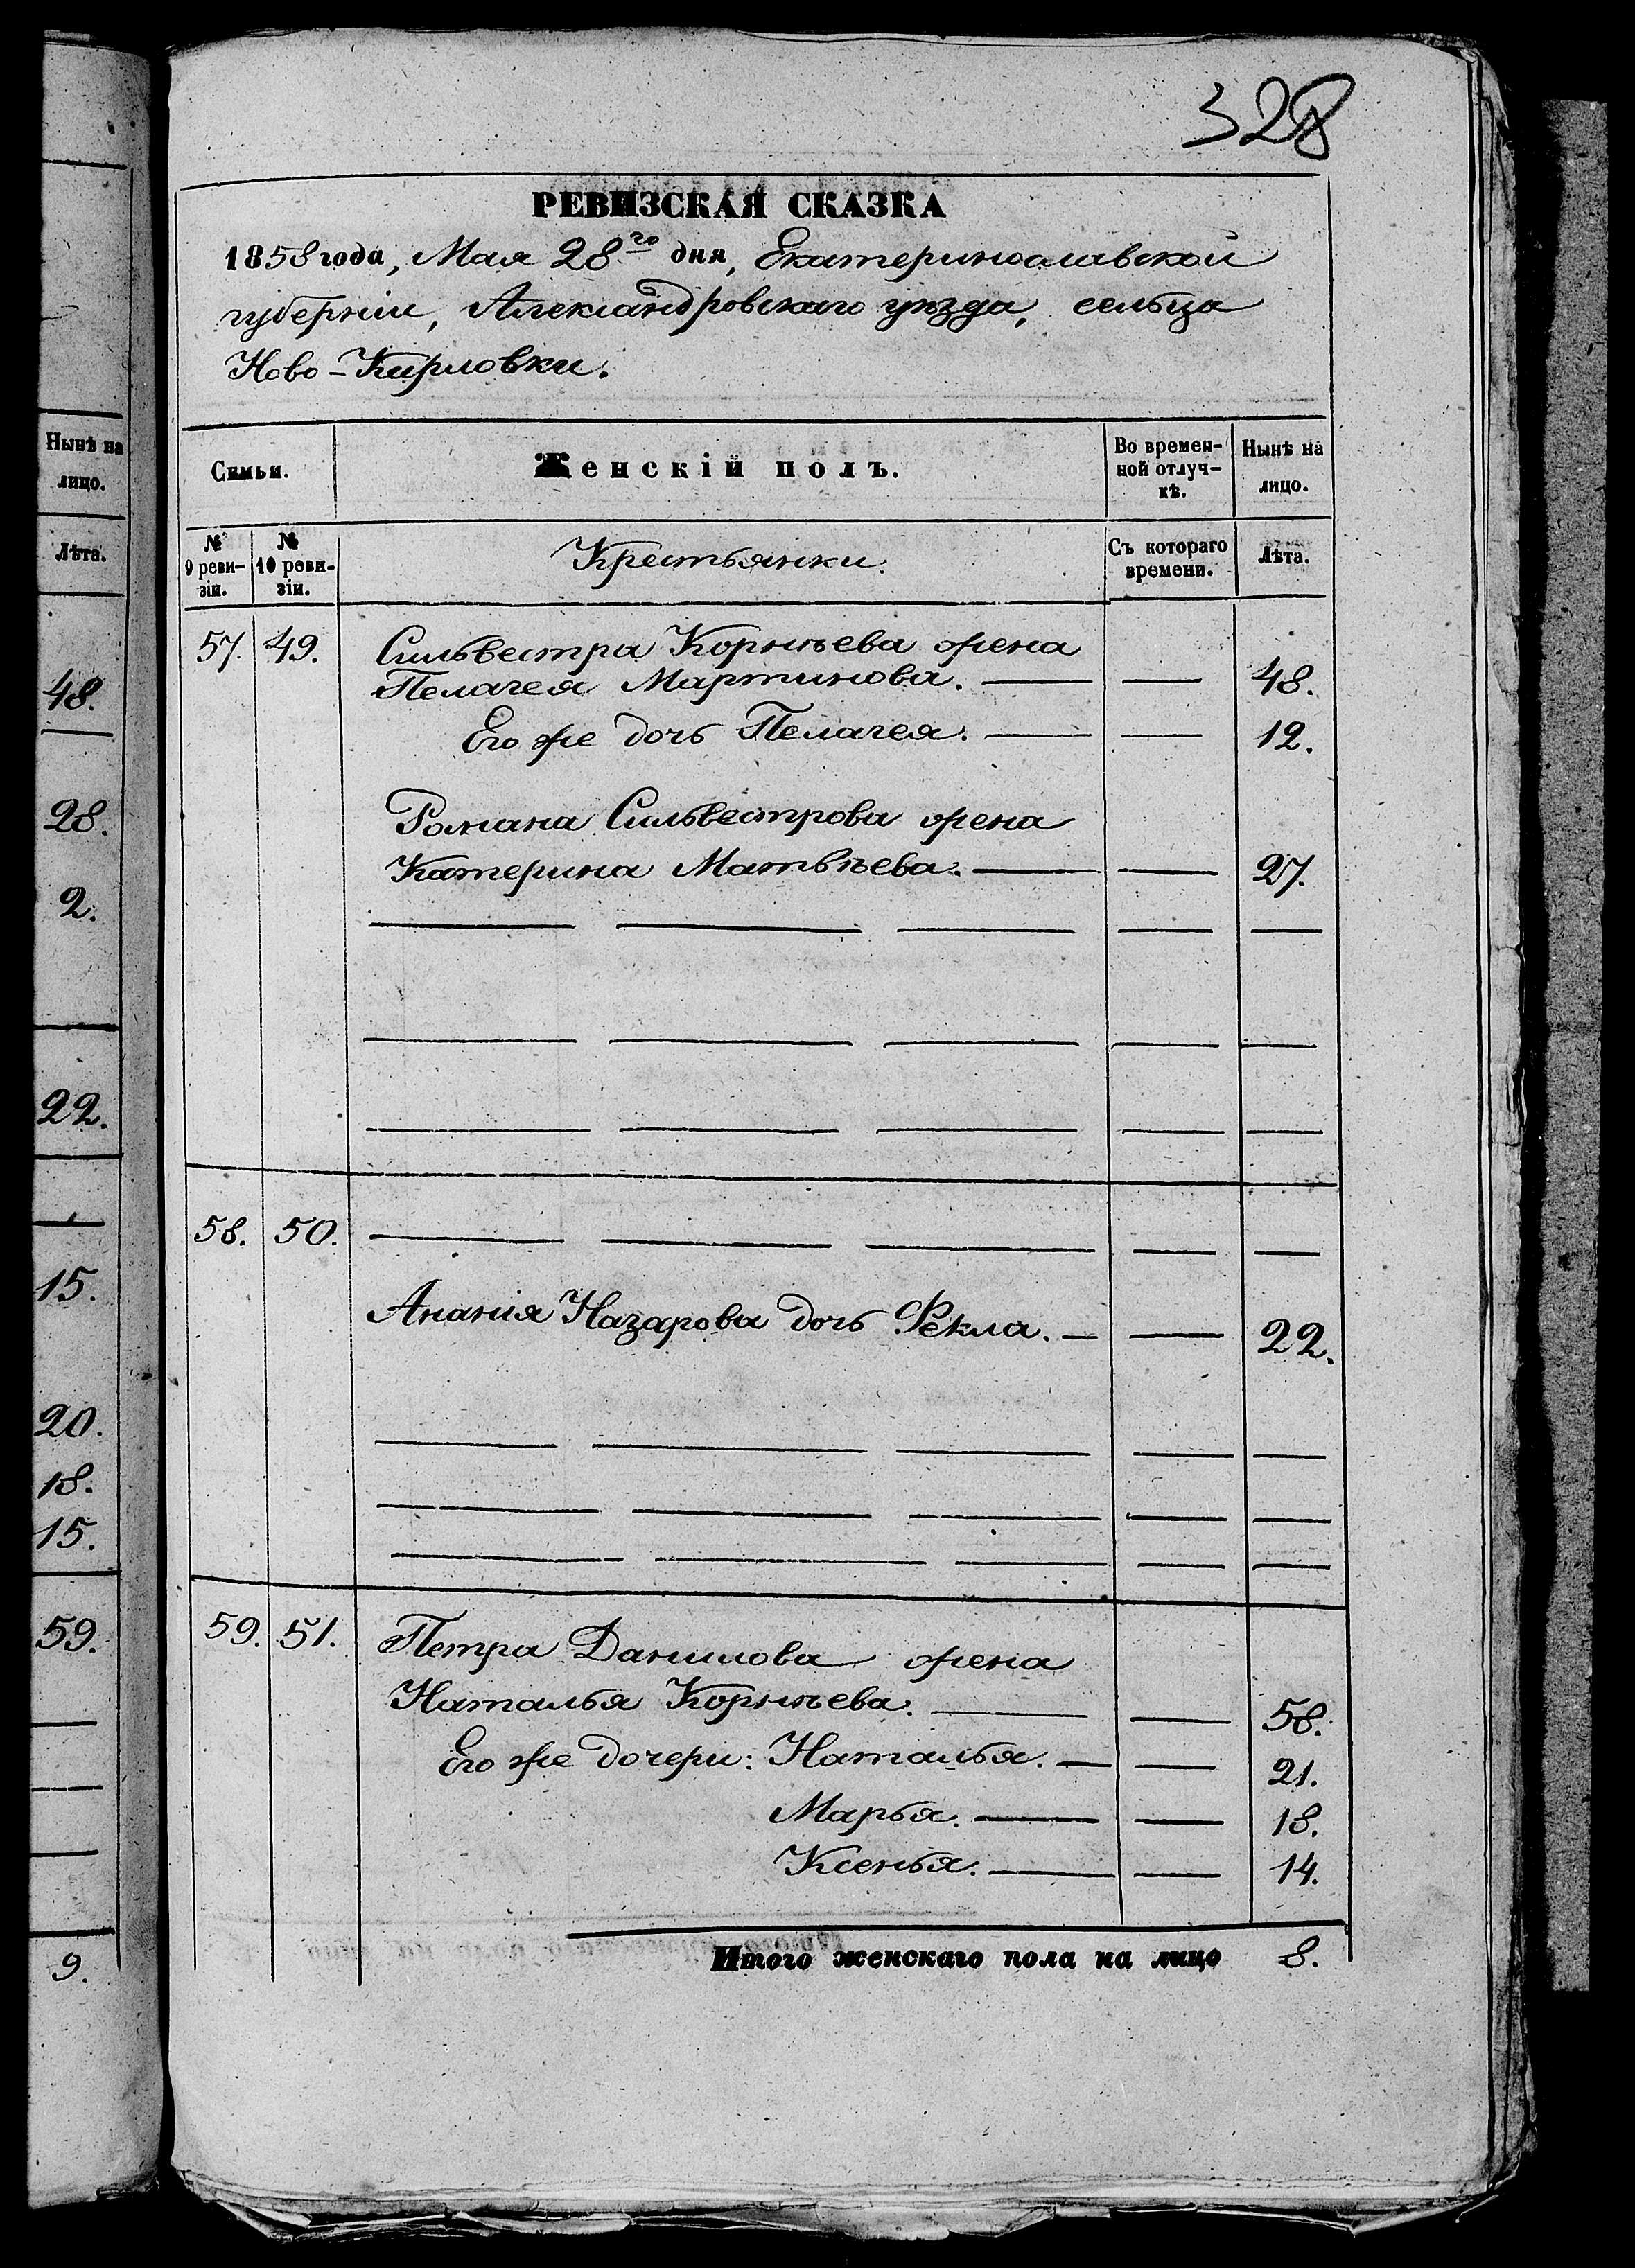 328
РЕВИЗСКАЯ СКАЗКА
1858 года, Мая 28го дня, Екатеринославской
губерніи, Александровскаго уѣзда, сельца
Ново-Кирловки.
Нынѣ на
лицо.
Лѣта.
48.
28.
2.
22.
15.
20.
18.
15.
59.
9.
Симьи.
Женскій полъ.
Во времен-
ной отлуч-
кѣ.
Нынѣ на
лицо.
№
9 реви-
зіи.
№
10 реви-
зіи.
Крестьянки.
Съ котораго
времени.
Лѣта.
57. 49. Сильвестра Корнѣева жена
Пелагея Мартинова. — — 48.
Его же дочь Пелагея. — — 12.
Романа Сильвестрова жена
Катерина Матвѣева. — — 27.
58. 50.
Ананія Назарова дочь Фекла. — — 22.
59. 51. Петра Данилова жена
Наталья Корнѣева. — — 58.
Его же дочери: Наталья. — — 21.
Марья. — — 18.
Ксенья. — — 14.
Итого женскаго пола на лицо 8.